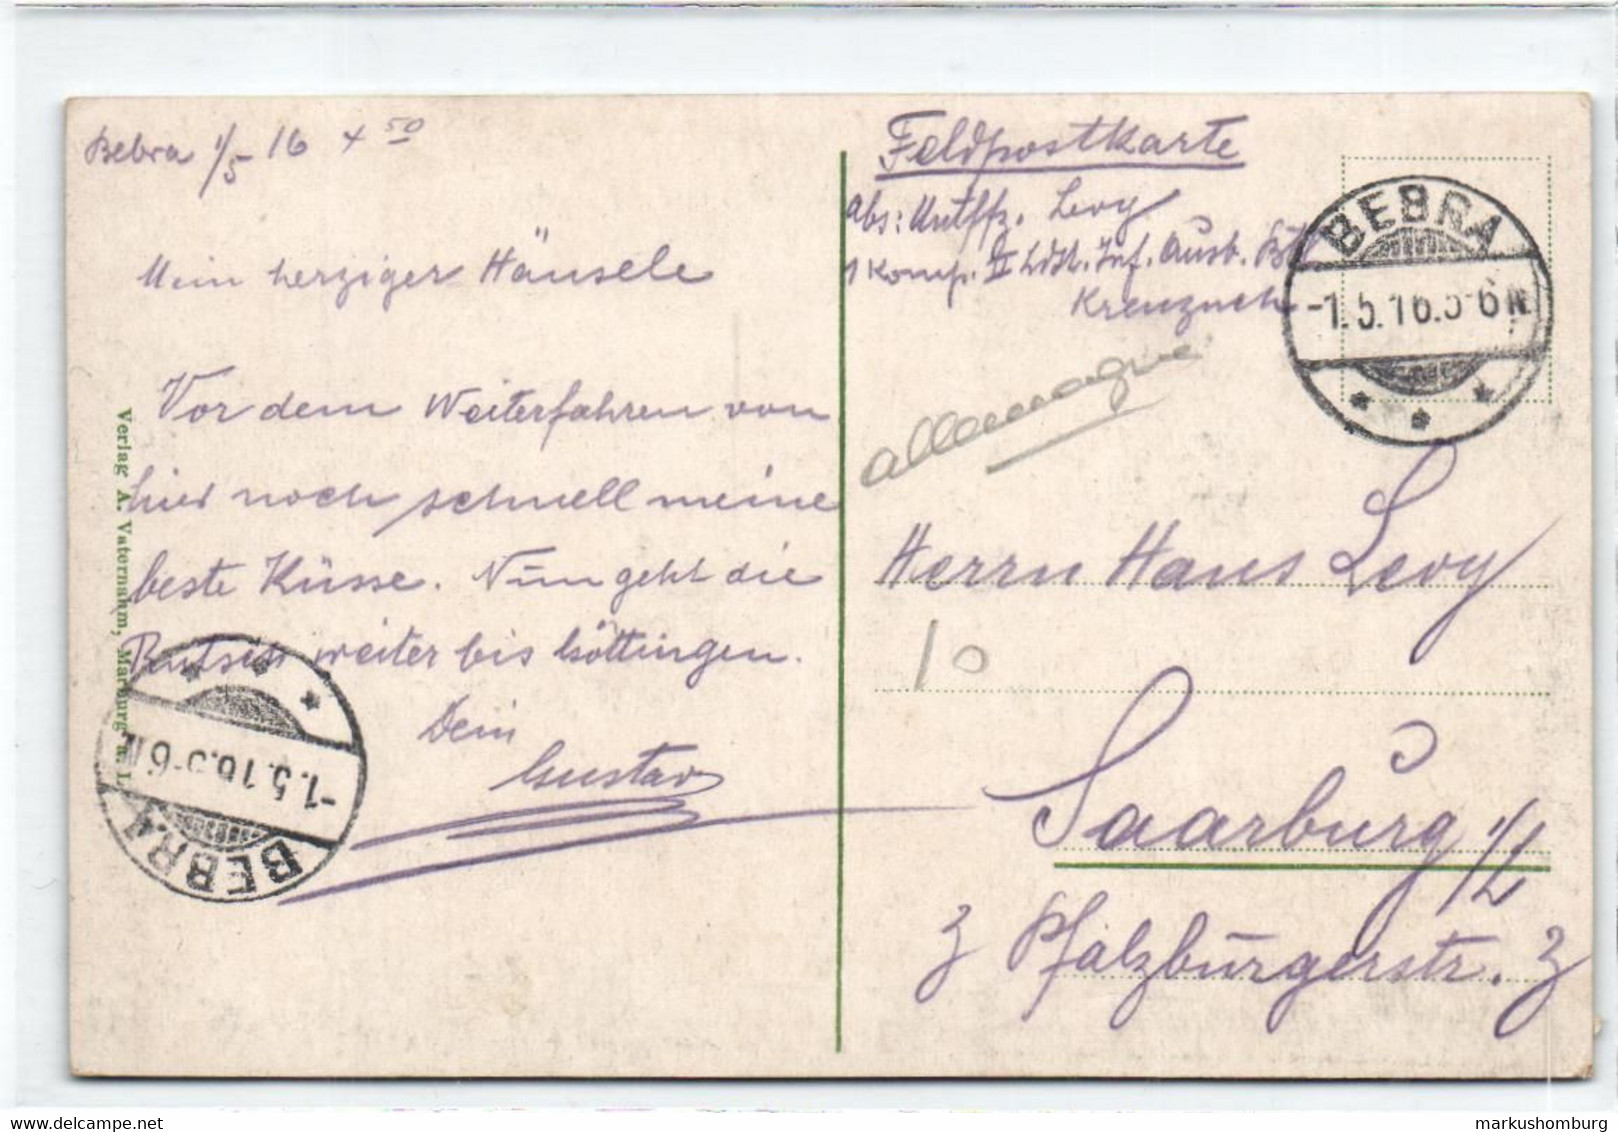 Bebra 1/5 16 4 50
Mein herziger Hänsele
Vor dem Weiterfahren von
hier noch schnell meine
beste Küsse. Nun geht die
weiter bis Göttingen.
Dein
Gustav
Verlag A. Vaternahm, Marburg a. L.
Feldpostkarte
Abs: Untffz. Levy
1 Komp. II Ldst. Inf. Ausb. Btl
Kreuznach
allemagne
BEBRA
-1.5.16.5-6 N.
Herrn Hans Levy
10
Saarburg i/L
3 Pfalzburgerstr. 3
BEBRA
-1.5.16.5-6 N
https://www.delcampe.net
markushomburg